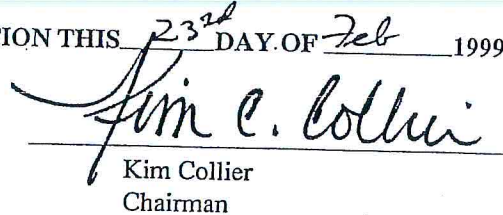 ION THIS 23rd DAY OF Feb 1999
Kim C. Collier
Kim Collier
Chairman